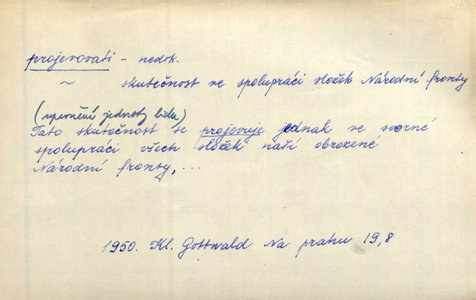 projevovati - nedok.
~ skutečnost ve spolupráci složek Národní fronty
(upevnění jednoty lidu)
Tato skutečnost se projevuje jednak ve svorné
spolupráci všech složek naší obrozené
Národní fronty, ...
1950. Kl. Gottwald Na prahu 19,8